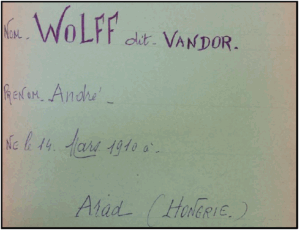 NOM. WOLFF dit. VANDOR.
PRENOM. André.
Né le 14. Mars 1910 à.
Arad (HONERIE.)